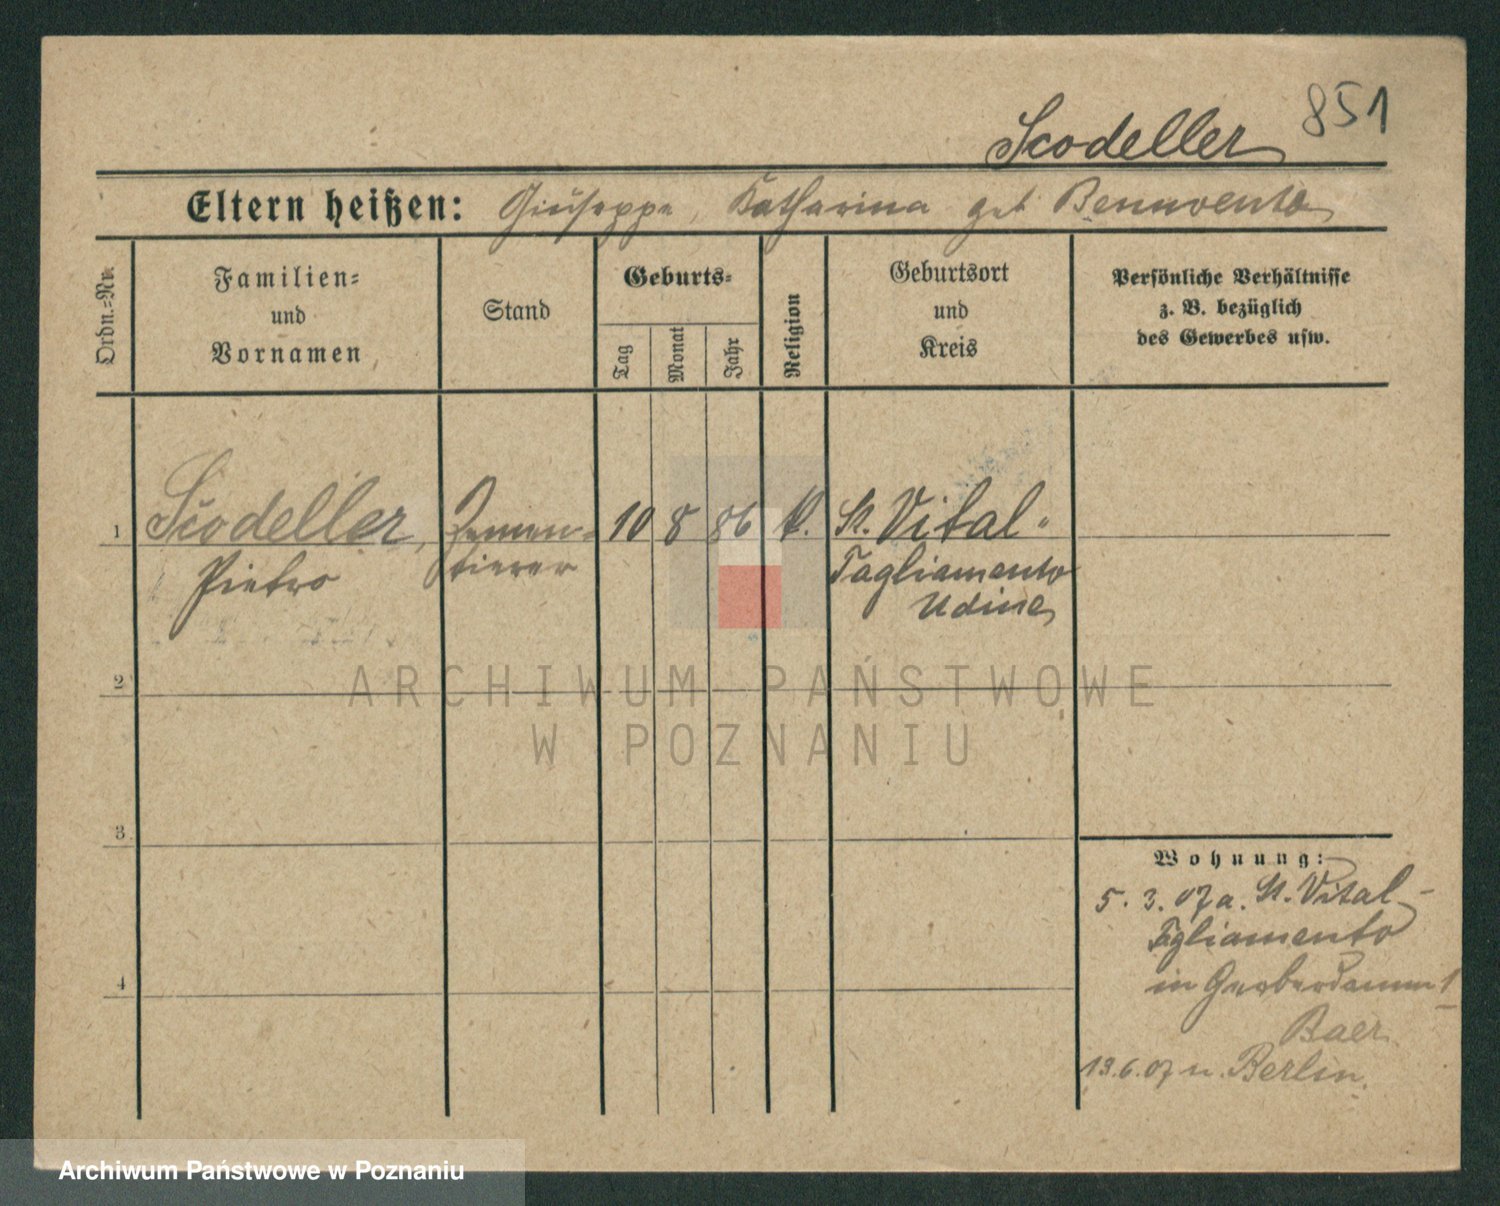 Scodeller 851
Eltern heißen: Giuseppe, Katharina geb Benuvento
Ordn.-Nr.
Familien-
und
Vornamen
Stand
Geburts-
Tag
Monat
Jahr
Religion
Geburtsort
und
Kreis
Persönliche Verhältnisse
z. B. bezüglich
des Gewerbes usw.
1 Scodeller, Zemen- 10 8 86 k. St. Vital-
Pietro tierer Tagliamento
Udine
2
ARCHIWUM PAŃSTWOWE
W POZNANIU
3
4
Wohnung:
5. 3. 07 a. St. Vital-
Tagliamento
in Gerberdamm 1
Baer
13.6.07 n. Berlin.
Archiwum Państwowe w Poznaniu